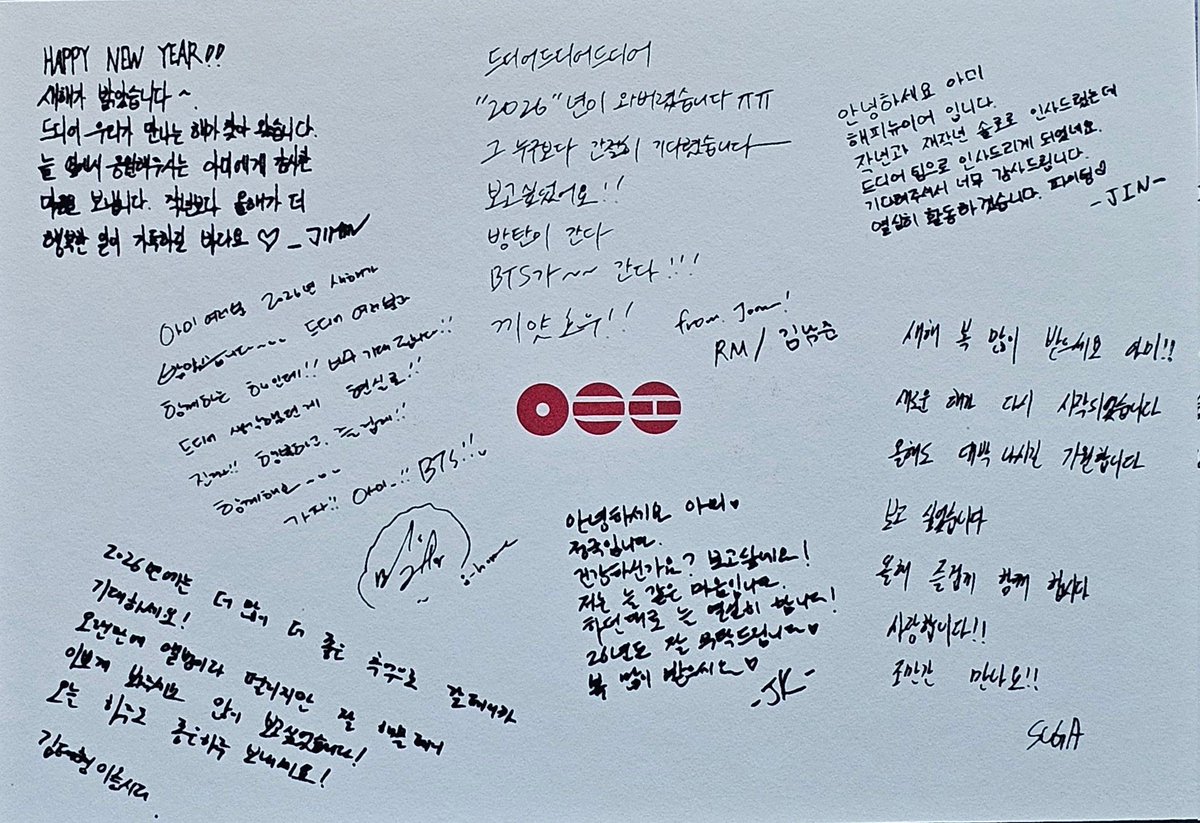 HAPPY NEW YEAR!!
새해가 밝았습니다~.
드디어 우리가 만나는 해가 찾아 왔습니다.
늘 옆에서 응원해주시는 아미에게 감사한
마음을 보냅니다. 작년보다 올해가 더
행복한 일이 가득하길 바래요 ♡ - JIMIN
드디어드디어드디어
"2026"년이 와버렸습니다 ㅠㅠ
그 누구보다 간절히 기다렸습니다
보고싶었어요!!
방탄이 간다
BTS가~~ 간다!!!
끼얏호우!!
from. Joon!
RM / 김남준
안녕하세요 아미
해피뉴이어 입니다.
작년과 재작년 솔로로 인사드렸는데
드디어 팀으로 인사드리게 되었네요.
기다려주셔서 너무 감사드립니다.
열심히 활동하겠습니다. 파이팅♡
-JIN-
아미 여러분 2026년 새해가
밝았습니다~~~ 드디어 여러분과
함께하는 해인데!! 너무 기대됩니다!!
드디어 생각했던게 현실로!!
진짜!! 행복하고, 즐겁게!!
함께해요~~~
가자!! 아미~!! BTS!!
j-hope
새해 복 많이 받으세요 아미!!
새로운 해가 다시 시작되었습니다
올해도 대박 나시길 기원합니다
보고 싶었습니다
올해 즐겁게 함께 합시다
사랑합니다!!
조만간 만나요!!
SUGA
2026년에는 더 많이 더 좋은 추억으로 갈테니까
기대하세요!
오랜만에 앨범이라 떨리지만 잘 해볼 테니
이쁘게 봐주시고 많이 보고싶었습니다!
오늘 하루도 좋은하루 보내세요!
김태형 이올시다.
안녕하세요 아미♡
정국입니다.
건강하신가요? 보고싶네요!
저는 늘 같은 마음입니다.
하던대로 늘 열심히 합니다!
26년도 잘 부탁드립니다♡
복 많이 받으시오♡
-JK-